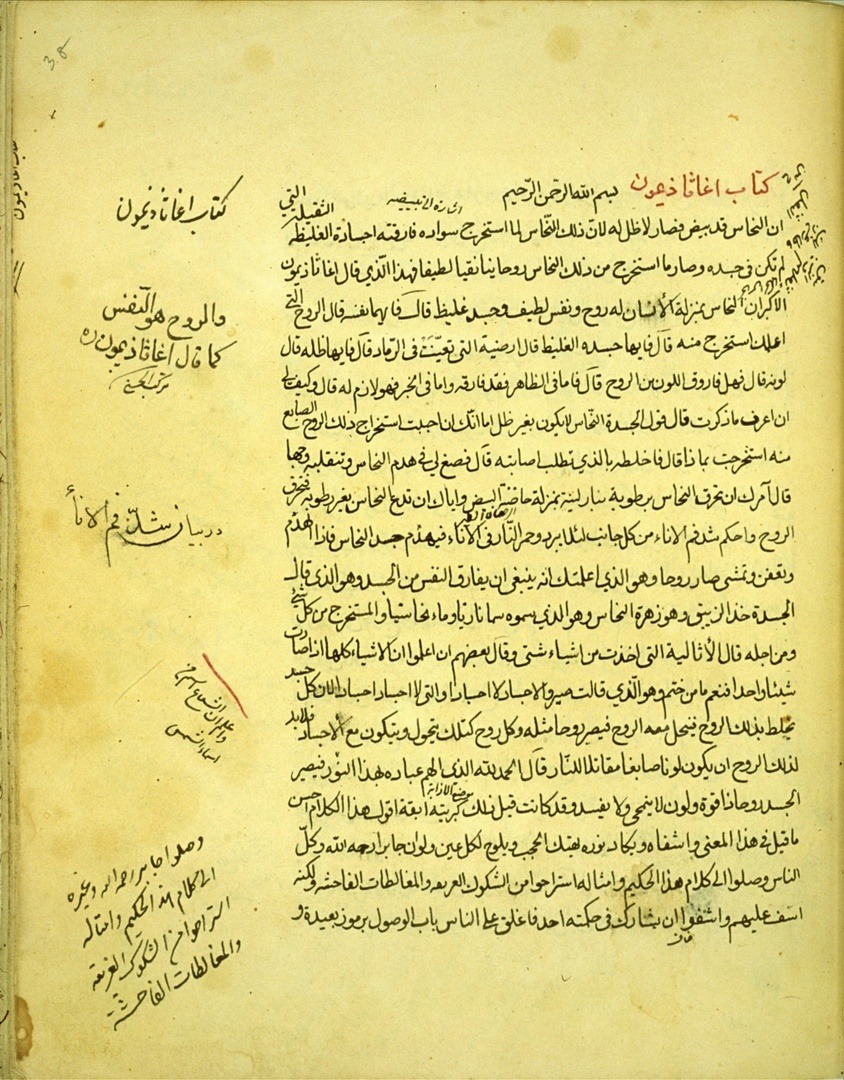 38
كتاب اغاثاذيمون بسم الله الرحمن الرحيم
ان النحاس قد بيض فصار لا ظل له لان ذلك النحاس لما استخرج سواده فارقته اجساده الغليظة الثقيلة التي
لم تكن في جسده وصار ما استخرج من ذلك النحاس روحانيا نقيا لطيفا فهذا الذي قال اغاثاذيمون
الاكبر ان النحاس بمنزلة الانسان له روح ونفس لطيف وجسد غليظ قال فايهما نفسه قال الروح التي
اعلمك استخرج منه قال فايها جسده الغليظ قال ارضية التي تعينت في الرماد قال فايها ظله قال
لونه قال فهل فاروق اللون من الروح قال فاما في الظاهر فقد فارقه واما في الخبر فهو لازم له قال وكيف لي
ان اعرف ما ذكرت قال قول الجسدة النحاس لا يكون بغير ظل اما انك ان احببت استخراج ذلك الروح الصابغ
منه استخرجت بماذا قال فاخلطه بالذي تطلب اصابته قال فصغ لي في هدم النحاس وتنقلبه وجها
قال آمرك ان تحرق النحاس برطوبة بنار لينة بمنزلة حاضنة البيض واياك ان تدع النحاس بغير رطوبة فتحرق
الروح واحكم شد فم الاناء من كل جانب لئلا يبرد وحر النار في الاناء فيهدم جسد النحاس فاذا انهدم
وتعفن وتمشى صار روحا وهو الذي اعلمتك انه ينبغي ان يفارق النفس من الجسد وهو الذي قال
الجسدة خذ الزيبق وهو زهرة النحاس وهو الذي يسموه سما ناريا وماء نحاسيا والمستخرج من كل شئ
ومن اجله قال الأثالية التي اخذت من اشياء شتى وقال بعضهم ان اعلموا ان الاشياء كلها اذا صارت
شيئا واحدا فنعم ما من ختم وهو الذي قالت صيروا الاجساد لا اجسادا والتي لا اجساد اجسادا لان كل جسد
يخلط بذلك الروح فينحل معه الروح فيصير روحا مثله وكل روح كذلك يتحول ويتكون مع الاجساد فلابد
لذلك الروح ان يكون لونا صابغا مقاتلا للنار قال الحمد لله الذي الهم عباده بهذا النور فيصير
الجسد روحا ذا قوة ولون لا ينمحي ولا يفسد وقد كانت قبل ذلك كبريته آبقة اقول هذا الكلام احسن
ما قيل في هذا المعنى واشفاه ويكاد نوره يهتك الحجب ويلوح لكل عين ولوان جابرا رحمه الله وكل
الناس وصلوا الى كلام هذا الحكيم وامثاله استراحوا من الشكوك والمغالطات الفاحشة ولكنه
اسف عليهم واشفقوا ان يشارك في حكمته احد فاغلق على الناس باب الوصول برموز بعيدة و
كتاب اغاثاذيمون
والروح هو النفس
كما قال اغاثاذيمون
در بيان شد فم الاناء
وصلوا جابر رحمه الله وغيره
الى كلام هذا الحكيم وامثاله
استراحوا من الشكوك
والمغالطات الفاحشة